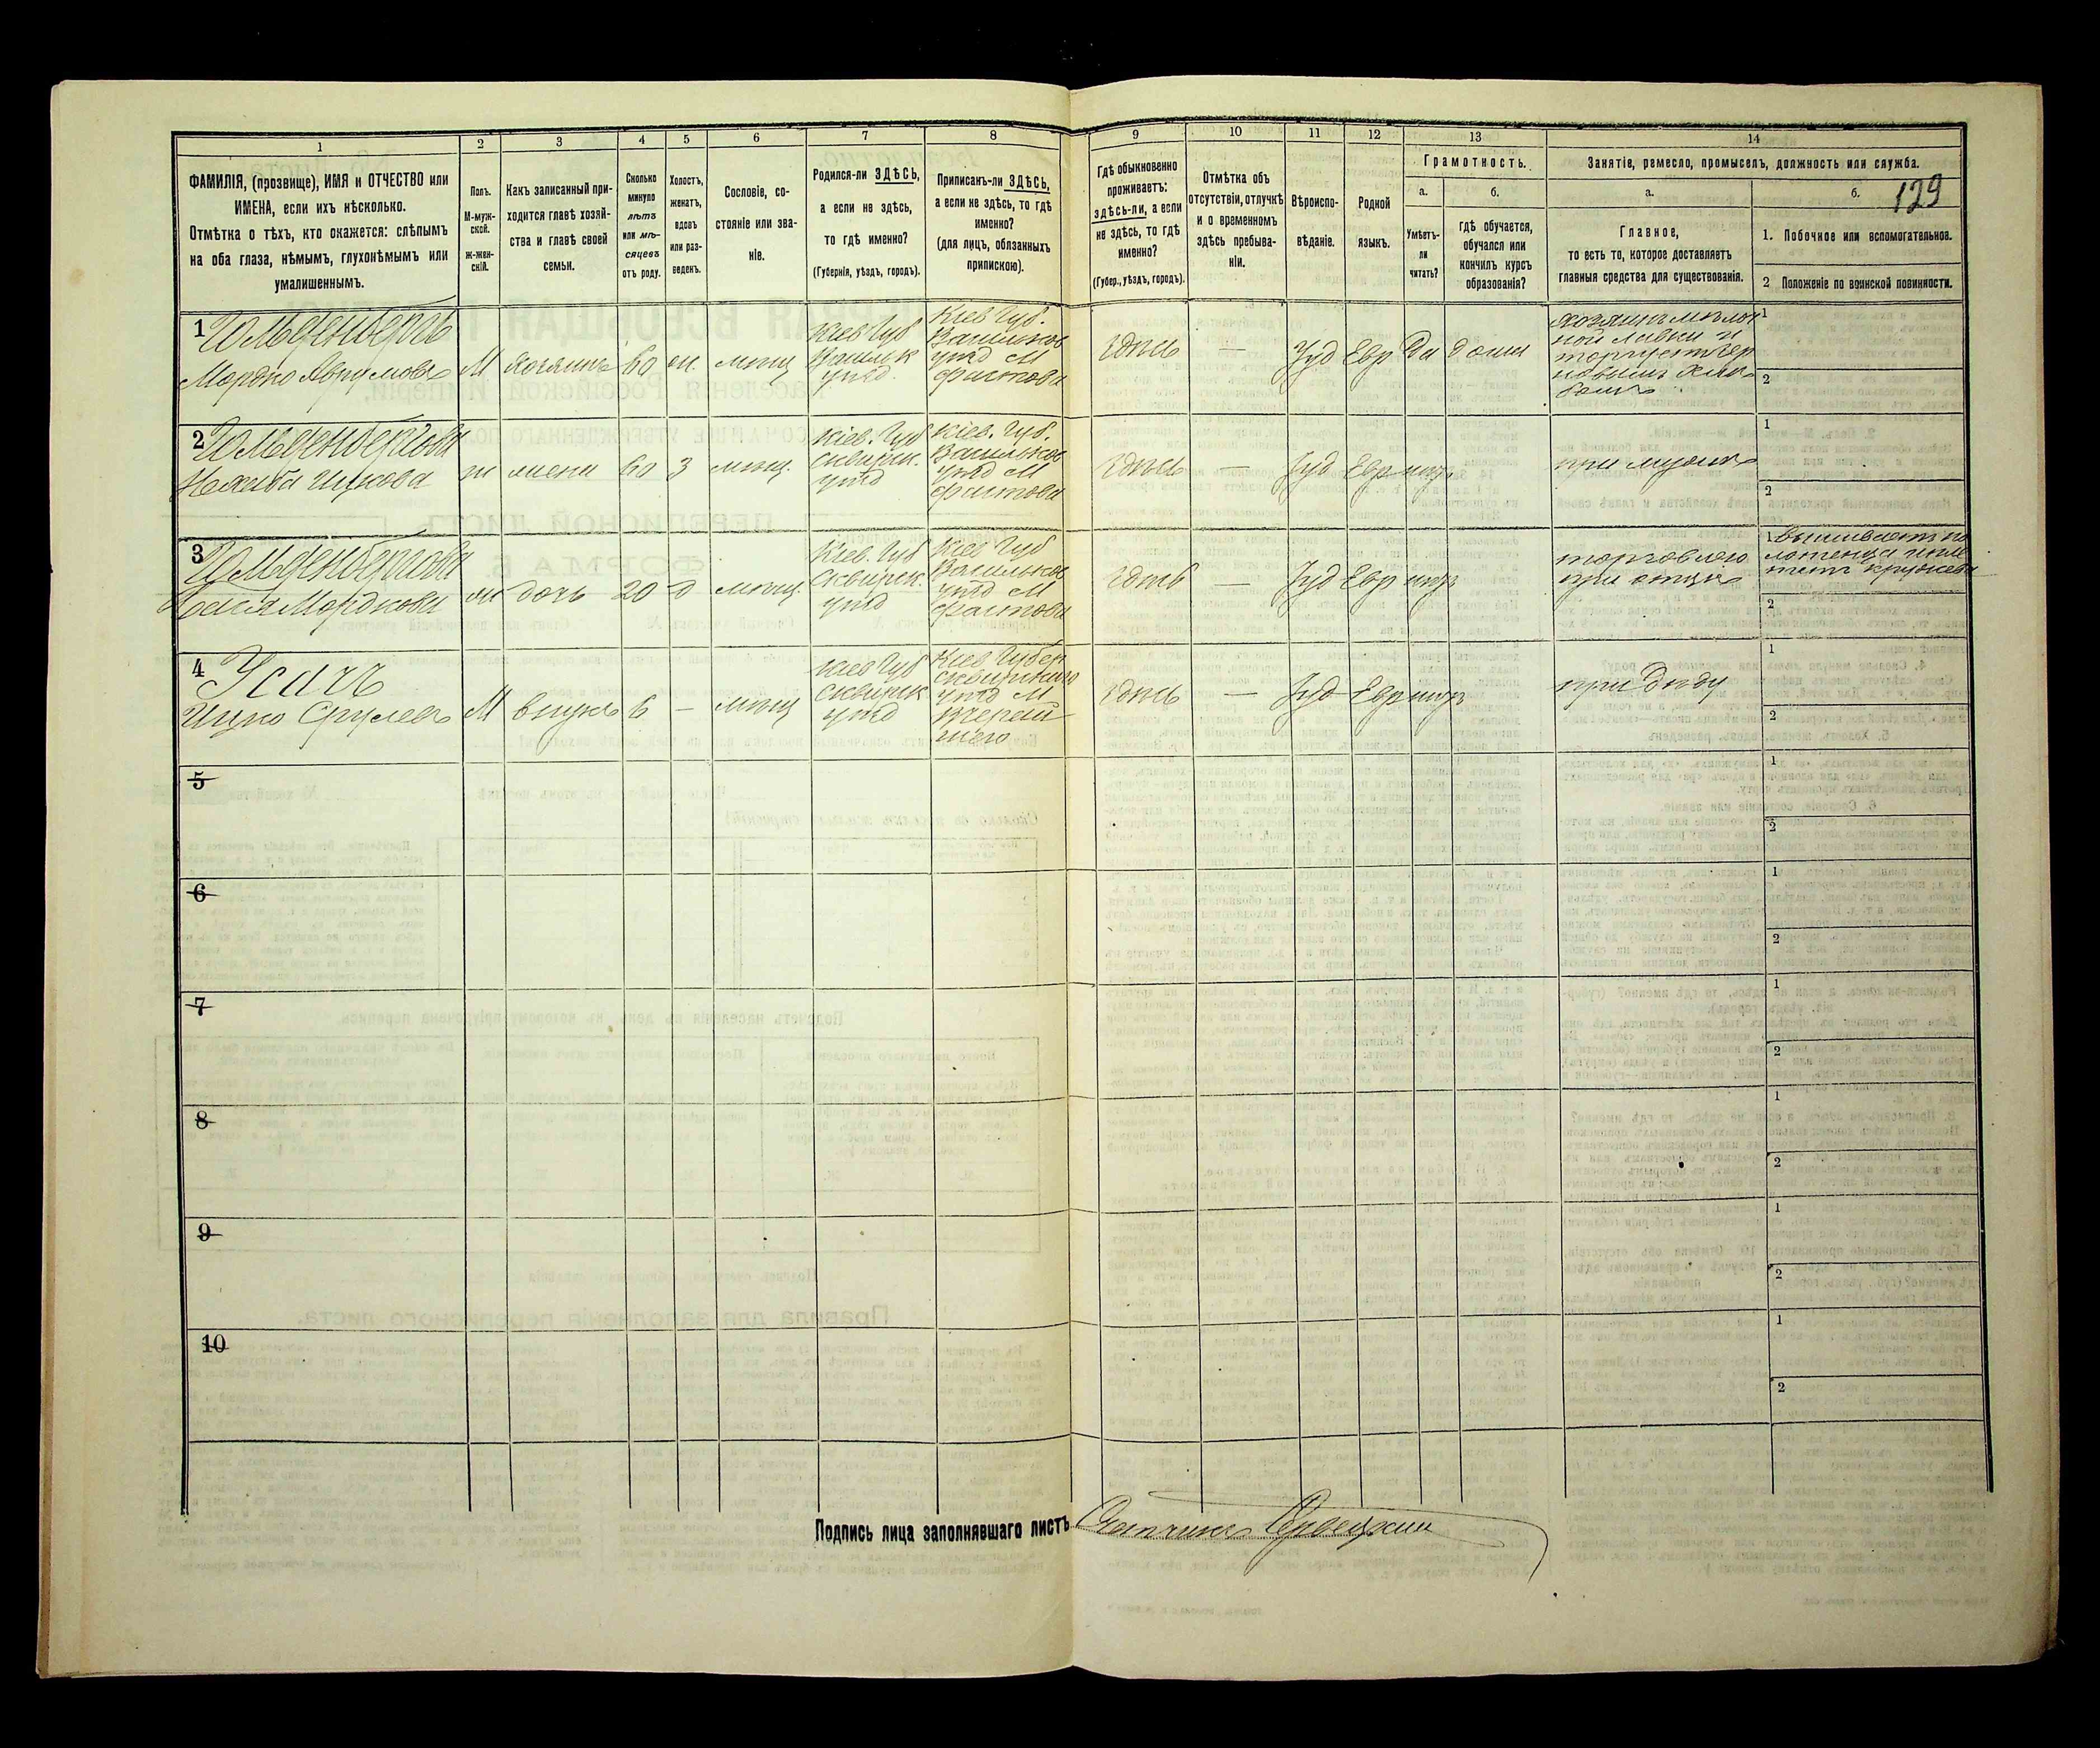 1
2
3
4
5
6
7
8
9
10
11
12
13
14
ФАМИЛІЯ, (прозвище), ИМЯ и ОТЧЕСТВО или
ИМЕНА, если ихъ нѣсколько.
Отмѣтка о тѣхъ, кто окажется: слѣпымъ
на оба глаза, нѣмымъ, глухонѣмымъ или
умалишеннымъ.
Полъ.
М-муж-
ской.
ж-жен-
скій.
Какъ записанный при-
ходится главѣ хозяй-
ства и главѣ своей
семьи.
Сколько
минуло
лѣтъ
или мѣ-
сяцевъ
отъ роду.
Холостъ,
женатъ,
вдовъ
или раз-
веденъ.
Сословіе, со-
стояніе или зва-
ніе.
Родился-ли ЗДѢСЬ,
а если не здѣсь,
то гдѣ именно?
(Губернія, уѣздъ, городъ).
Приписанъ-ли ЗДѢСЬ,
а если не здѣсь, то гдѣ
именно?
(для лицъ, обязанныхъ
припискою).
Гдѣ обыкновенно
проживаетъ:
здѣсь-ли, а если
не здѣсь, то гдѣ
именно?
(Губер., уѣздъ, городъ).
Отмѣтка объ
отсутствіи, отлучкѣ
и о временномъ
здѣсь пребыва-
ніи.
Вѣроиспо-
вѣданіе.
Родной
языкъ.
Грамотность.
а.
Умѣетъ-
ли
читать?
б.
Гдѣ обучается,
обучался или
кончилъ курсъ
образованія?
Занятіе, ремесло, промыселъ, должность или служба.
а.
Главное,
то есть то, которое доставляетъ
главныя средства для существованія.
б.
129
1. Побочное или вспомогательное.
2 Положеніе по воинской повинности.
1
Гольденбергъ
Мордко Аврумовъ
М
хозяинъ
60
ж.
мѣщ
Кіев Губ
Васильк
уѣзд
Кіев Губ.
Васильков
уѣзд М
Фастова
здѣсь
—
Іуд
Евр
Да
дома
торгуетъ
1
2
2
Гольденбергова
Ицкова
ж
жена
60
З
мѣщ.
Кіев. Губ
Сквирск.
уѣзд
Кіев. Губ.
Васильков
уѣзд М
Фастова
здѣсь
—
Іуд
Евр
нѣтъ
при мужѣ
1
2
3
Гольденбергова
Хася Мордкова
ж
дочь
20
д
мѣщ.
Кіев. Губ
Сквирск.
уѣзд
Кіев Губ
Васильков
уѣзд М
Фастова
здѣсь
—
Іуд
Евр
нѣтъ
торговлею
при отцѣ
1
вышиваетъ по
лотенца и пле
тетъ кружева
2
4
Усачъ
Ицко Срулевъ
М
внукъ
6
—
мѣщ
Кіев Губ
Сквирск
уѣзд
Кіев Губер
Сквирскаго
уѣзд М
здѣсь
—
Іуд
Евр
нѣтъ
при дѣду
1
2
5
1
2
6
1
2
7
1
2
8
1
2
9
1
2
10
1
2
Подпись лица заполнявшаго листъ